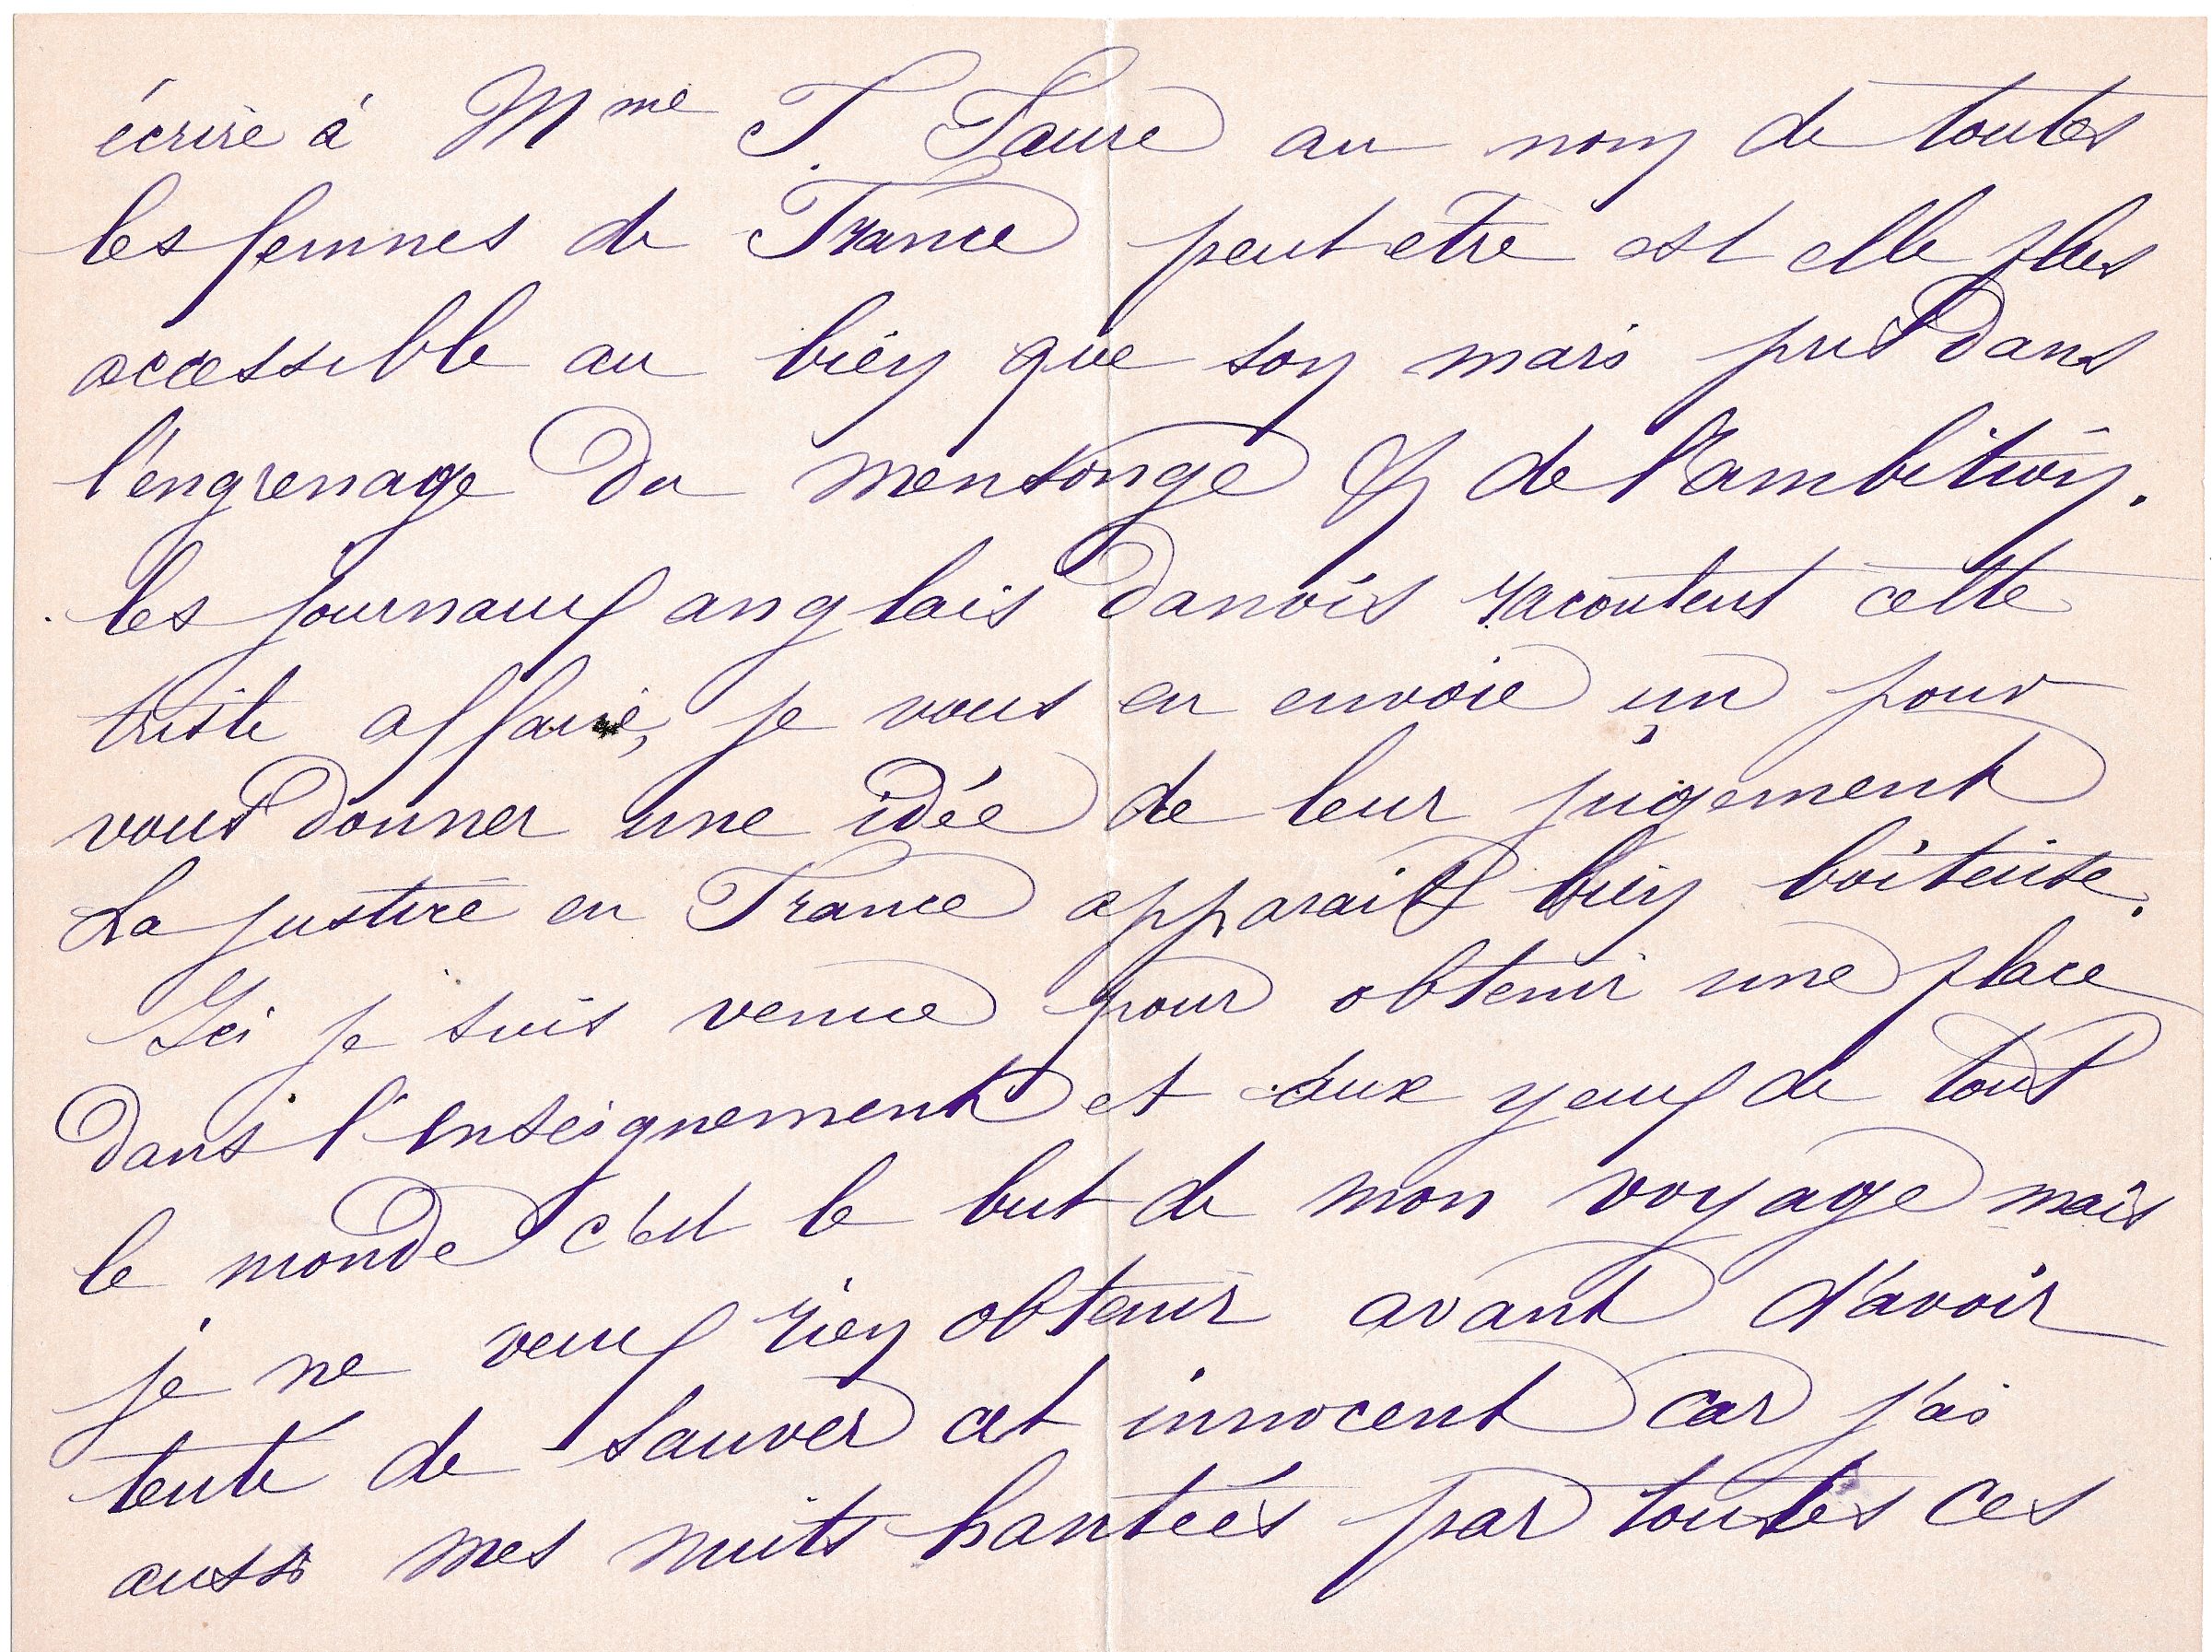 écrire à Mme F. Faure au nom de toutes
les femmes de France peut etre est elle plus
accessible au bien que son mari pris dans
l'engrenage du mensonge & de l'ambition.
les journaux anglais danois racontent cette
triste affaire, je vous en envoie un pour
vous donner une idée de leur jugement
La justice en France apparait bien boiteuse.
Ici je suis venue pour obtenir une place
dans l'enseignement et aux yeux de tout
le monde c'est le but de mon voyage mais
je ne veux rien obtenir avant d'avoir
tenté de sauver cet innocent car j'ai
aussi mes nuits hantées par toutes ces